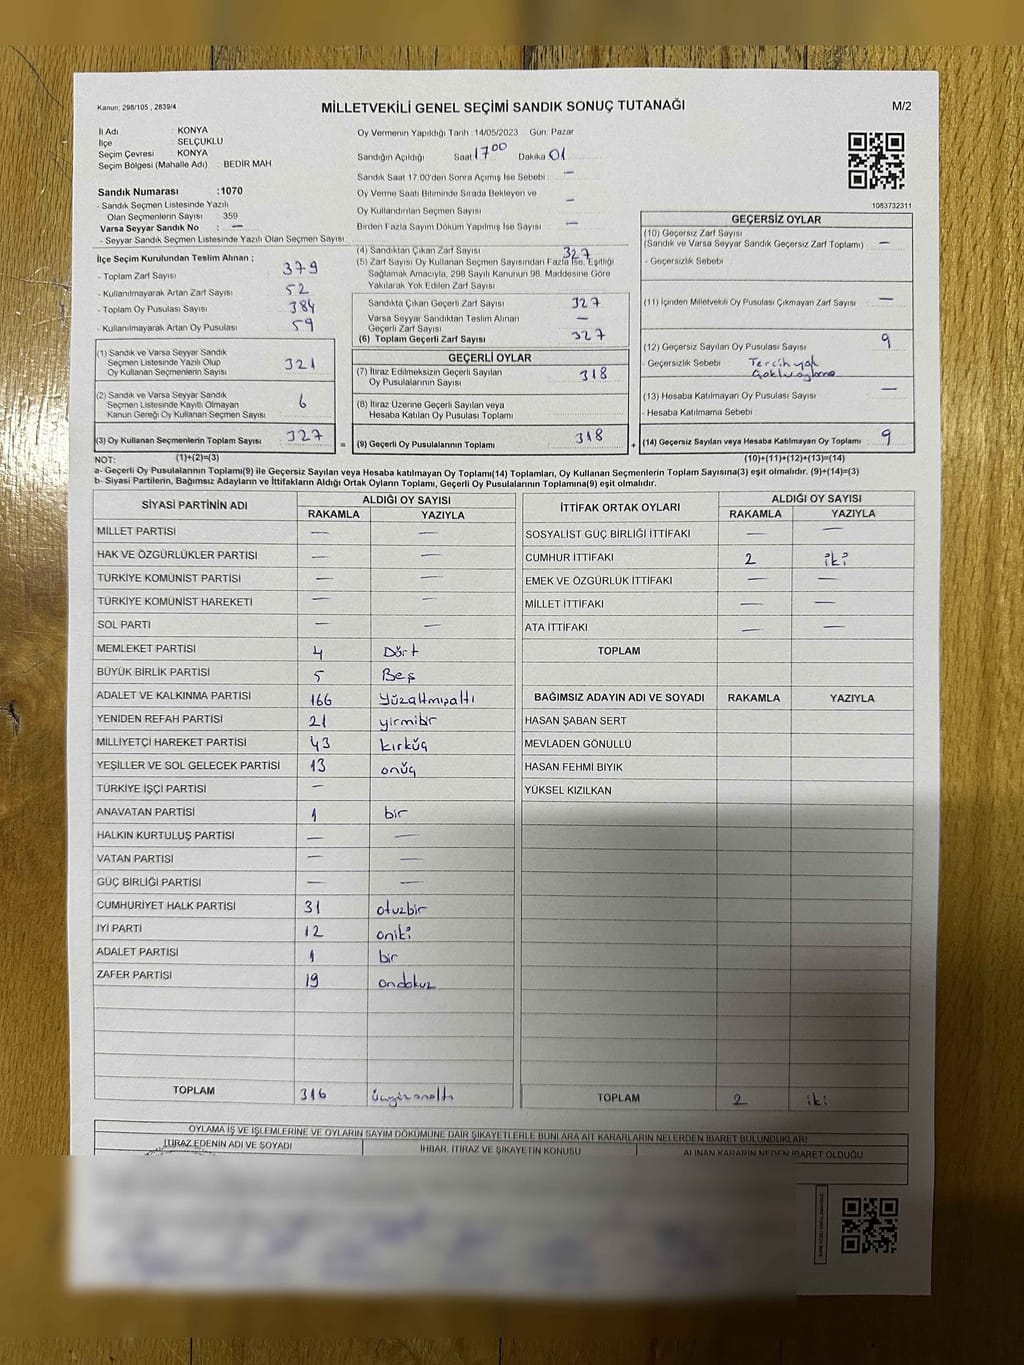 Kanun: 298/105 , 2839/4
MİLLETVEKİLİ GENEL SEÇİMİ SANDIK SONUÇ TUTANAĞI
M/2
İl Adı : KONYA
İlçe : SELÇUKLU
Seçim Çevresi : KONYA
Seçim Bölgesi (Mahalle Adı) : BEDIR MAH
Sandık Numarası : 1070
- Sandık Seçmen Listesinde Yazılı
Olan Seçmenlerin Sayısı : 359
Varsa Seyyar Sandık No : —
- Seyyar Sandık Seçmen Listesinde Yazılı Olan Seçmen Sayısı
Oy Vermenin Yapıldığı Tarih :14/05/2023 Gün: Pazar
Sandığın Açıldığı Saat 17 00 Dakika 01
Sandık Saat 17.00'den Sonra Açımış İse Sebebi : —
Oy Verme Saati Bitiminde Sırada Bekleyen ve
Oy Kullandırılan Seçmen Sayısı —
Birden Fazla Sayım Döküm Yapılmış İse Sayısı : —
1083732311
İlçe Seçim Kurulundan Teslim Alınan ;
- Toplam Zarf Sayısı 379
- Kullanılmayarak Artan Zarf Sayısı : 52
- Toplam Oy Pusulası Sayısı 384
- Kullanılmayarak Artan Oy Pusulası 59
(1) Sandık ve Varsa Seyyar Sandık
Seçmen Listesinde Yazılı Olup
Oy Kullanan Seçmenlerin Sayısı 321
(2) Sandık ve Varsa Seyyar Sandık
Seçmen Listesinde Kayıtlı Olmayan
Kanun Gereği Oy Kullanan Seçmen Sayısı : 6
(3) Oy Kullanan Seçmenlerin Toplam Sayısı 327
(4) Sandıktan Çıkan Zarf Sayısı 327
(5) Zarf Sayısı Oy Kullanan Seçmen Sayısından Fazla İse, Eşitliği
Sağlamak Amacıyla, 298 Sayılı Kanunun 98. Maddesine Göre
Yakılarak Yok Edilen Zarf Sayısı
Sandıkta Çıkan Geçerli Zarf Sayısı 327
Varsa Seyyar Sandıktan Teslim Alınan
Geçerli Zarf Sayısı —
(6) Toplam Geçerli Zarf Sayısı 327
GEÇERLİ OYLAR
(7) İtiraz Edilmeksizin Geçerli Sayılan
Oy Pusulalarının Sayısı 318
(8) İtiraz Üzerine Geçerli Sayılan veya
Hesaba Katılan Oy Pusulası Toplamı
= (9) Geçerli Oy Pusulalarının Toplamı 318 +
GEÇERSİZ OYLAR
(10) Geçersiz Zarf Sayısı
(Sandık ve Varsa Seyyar Sandık Geçersiz Zarf Toplamı) —
- Geçersizlik Sebebi
(11) İçinden Milletvekili Oy Pusulası Çıkmayan Zarf Sayısı : —
(12) Geçersiz Sayılan Oy Pusulası Sayısı 9
- Geçersizlik Sebebi : Tercih yok
(13) Hesaba Katılmayan Oy Pusulası Sayısı —
- Hesaba Katılmama Sebebi
(14) Geçersiz Sayılan veya Hesaba Katılmayan Oy Toplamı : 9
NOT: (1)+(2)=(3) (10)+(11)+(12)+(13)=(14)
a- Geçerli Oy Pusulalarının Toplamı(9) ile Geçersiz Sayılan veya Hesaba katılmayan Oy Toplamı(14) Toplamları, Oy Kullanan Seçmenlerin Toplam Sayısına(3) eşit olmalıdır. (9)+(14)=(3)
b- Siyasi Partilerin, Bağımsız Adayların ve İttifakların Aldığı Ortak Oyların Toplamı, Geçerli Oy Pusulalarının Toplamına(9) eşit olmalıdır.
SİYASİ PARTİNİN ADI ALDIĞI OY SAYISI
RAKAMLA YAZIYLA
MİLLET PARTİSİ — —
HAK VE ÖZGÜRLÜKLER PARTİSİ — —
TÜRKİYE KOMÜNİST PARTİSİ — —
TÜRKİYE KOMÜNİST HAREKETİ — —
SOL PARTİ — —
MEMLEKET PARTİSİ 4 Dört
BÜYÜK BİRLİK PARTİSİ 5 Beş
ADALET VE KALKINMA PARTİSİ 166 Yüzaltmışaltı
YENİDEN REFAH PARTİSİ 21 yirmibir
MİLLİYETÇİ HAREKET PARTİSİ 43 kırküç
YEŞİLLER VE SOL GELECEK PARTİSİ 13 onüç
TÜRKİYE İŞÇİ PARTİSİ —
ANAVATAN PARTİSİ 1 bir
HALKIN KURTULUŞ PARTİSİ — —
VATAN PARTİSİ — —
GÜÇ BİRLİĞİ PARTİSİ — —
CUMHURİYET HALK PARTİSİ 31 otuzbir
İYİ PARTİ 12 oniki
ADALET PARTİSİ 1 bir
ZAFER PARTİSİ 19 ondokuz
TOPLAM 316 üçyüzonaltı
İTTİFAK ORTAK OYLARI ALDIĞI OY SAYISI
RAKAMLA YAZIYLA
SOSYALİST GÜÇ BİRLİĞİ İTTİFAKI — —
CUMHUR İTTİFAKI 2 iki
EMEK VE ÖZGÜRLÜK İTTİFAKI — —
MİLLET İTTİFAKI — —
ATA İTTİFAKI — —
TOPLAM
BAĞIMSIZ ADAYIN ADI VE SOYADI RAKAMLA YAZIYLA
HASAN ŞABAN SERT
MEVLADEN GÖNÜLLÜ
HASAN FEHMI BIYIK
YÜKSEL KIZILKAN
TOPLAM 2 iki
OYLAMA İŞ VE İŞLEMLERİNE VE OYLARIN SAYIM DÖKÜMÜNE DAİR ŞİKAYETLERLE BUNLARA AİT KARARLARIN NELERDEN İBARET BULUNDUKLARI
İTİRAZ EDENİN ADI VE SOYADI İHBAR, İTİRAZ VE ŞİKAYETİN KONUSU ALINAN KARARIN NEDEN İBARET OLDUĞU